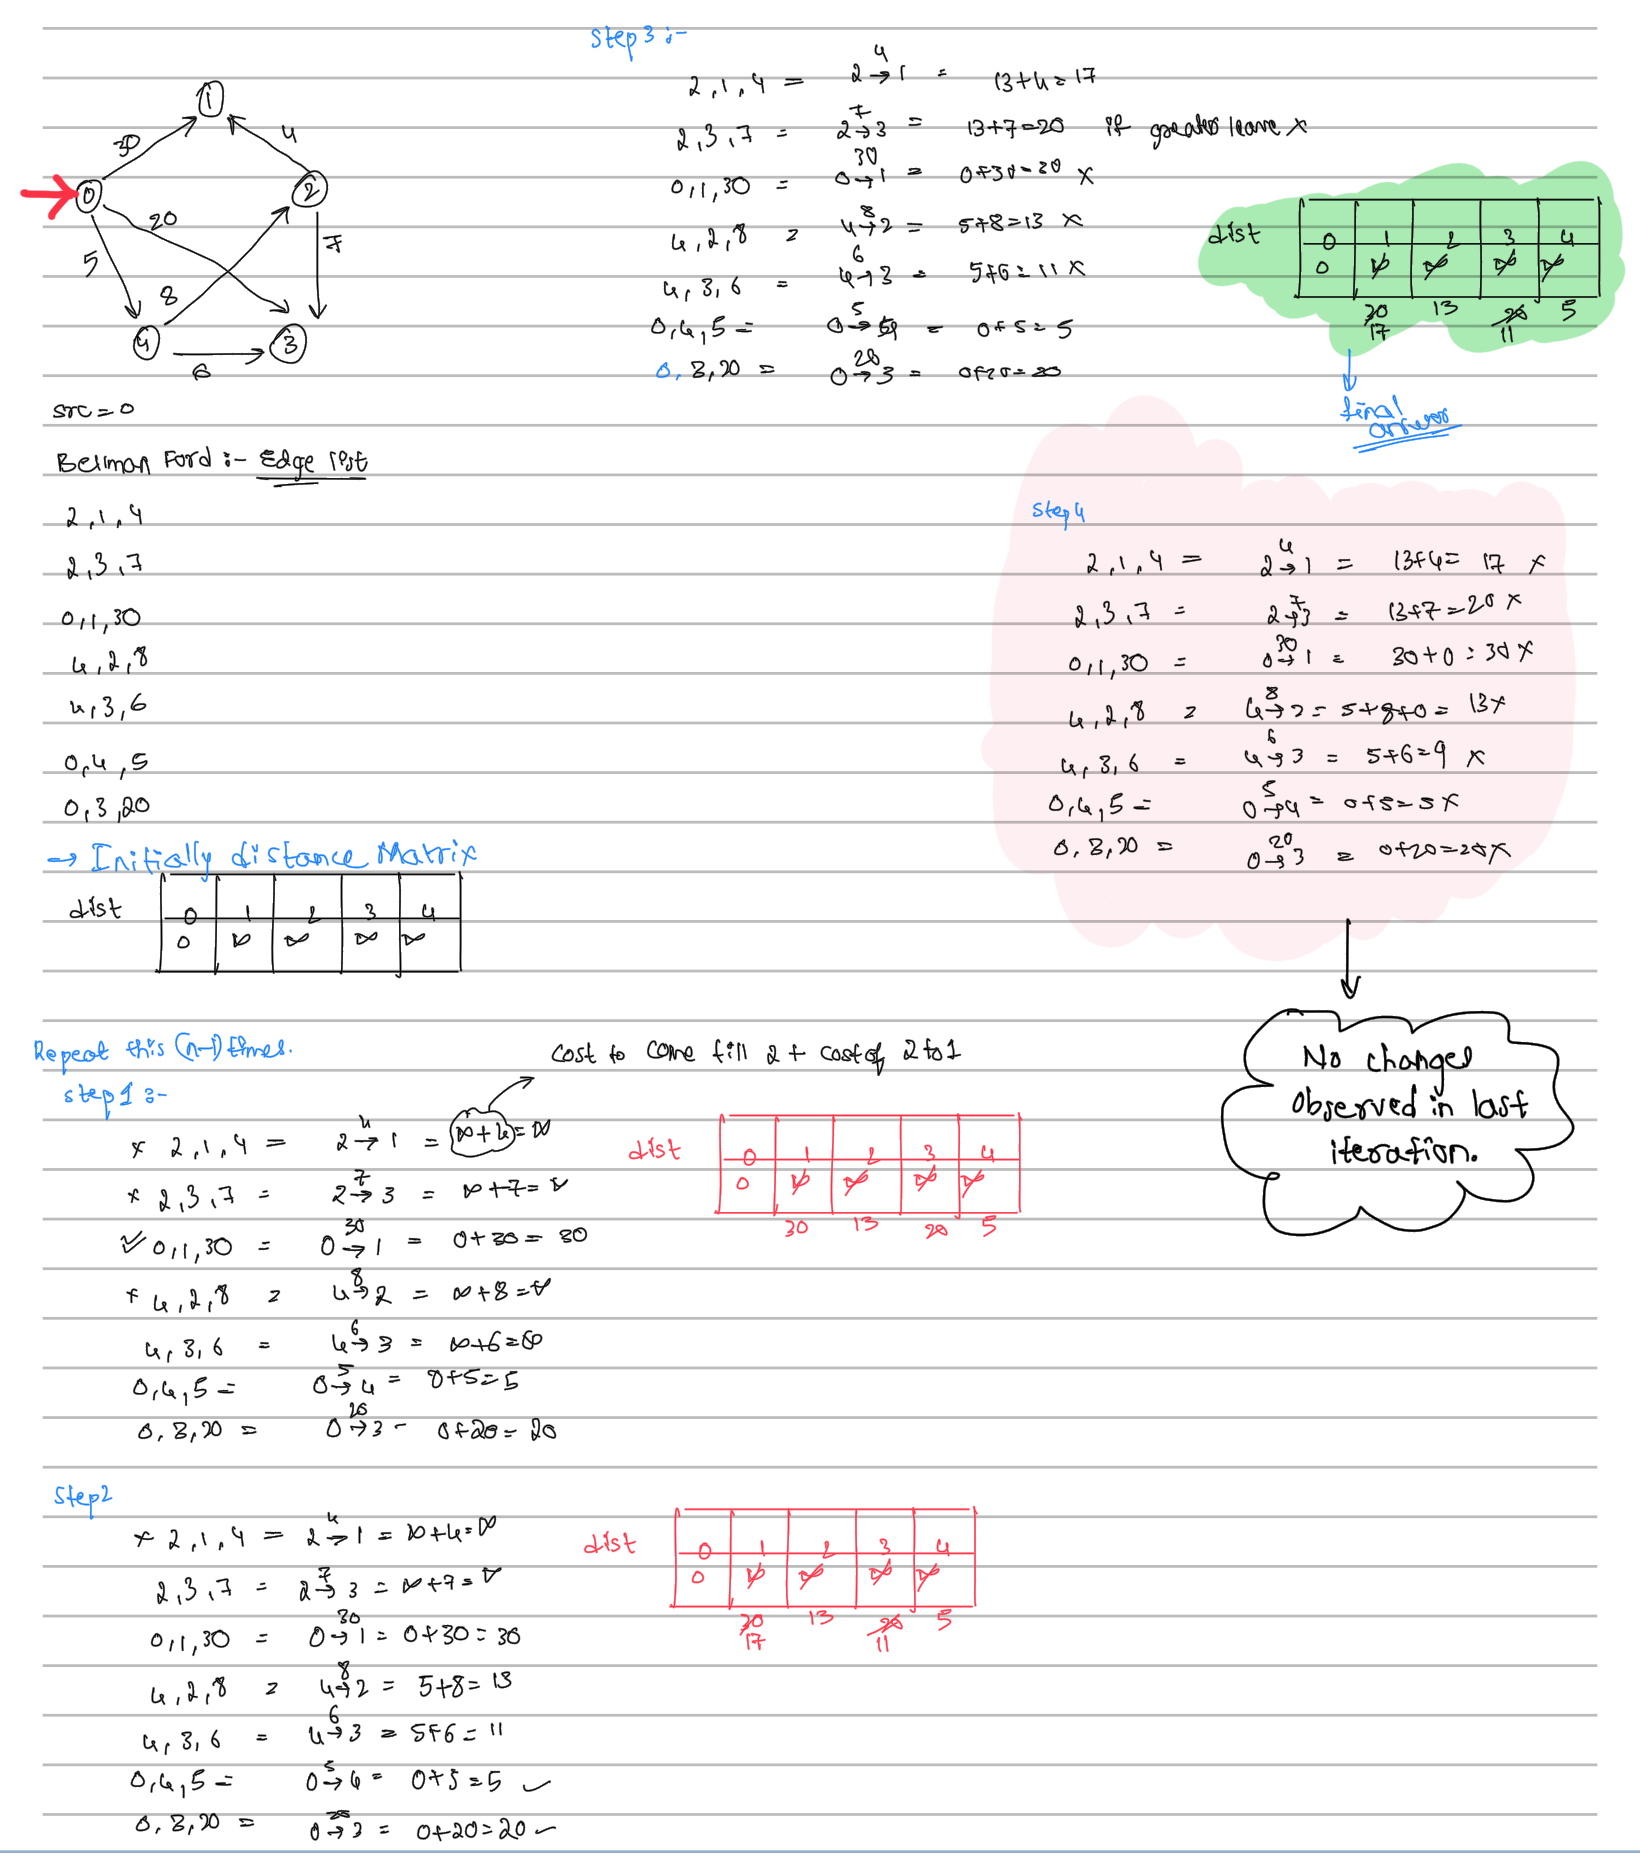 1
30
4
0
2
20
5
7
8
4
3
6
src = 0
Bellman Ford :- Edge list
2,1,4
2,3,7
0,1,30
4,2,8
4,3,6
0,4,5
0,3,20
→ Initially distance Matrix
dist
0 1 2 3 4
0 ∞ ∞ ∞ ∞
Repeat this (n-1) times.
cost to come till 2 + cost of 2 to 1
step 1 :-
x 2,1,4 = 2 →4 1 = ∞+4=∞
x 2,3,7 = 2 →7 3 = ∞+7=∞
✓ 0,1,30 = 0 →30 1 = 0+30=30
x 4,2,8 = 4 →8 2 = ∞+8=∞
4,3,6 = 4 →6 3 = ∞+6=∞
0,4,5 = 0 →5 4 = 0+5=5
0,3,20 = 0 →20 3 - 0+20=20
dist
0 1 2 3 4
0 ∞ ∞ ∞ ∞
30 13 20 5
Step2
x 2,1,4 = 2 →4 1 = ∞+4=∞
2,3,7 = 2 →7 3 = ∞+7=∞
0,1,30 = 0 →30 1 = 0+30=30
4,2,8 = 4 →8 2 = 5+8=13
4,3,6 = 4 →6 3 = 5+6=11
0,4,5 = 0 →5 4 = 0+5=5 ✓
0,3,20 = 0 →20 3 = 0+20=20 ✓
dist
0 1 2 3 4
0 ∞ ∞ ∞ ∞
30 13 20 5
17 11
Step 3 :-
2,1,4 = 2 →4 1 = 13+4=17
2,3,7 = 2 →7 3 = 13+7=20 if greater leave x
0,1,30 = 0 →30 1 = 0+30=30 x
4,2,8 = 4 →8 2 = 5+8=13 x
4,3,6 = 4 →6 3 = 5+6=11 x
0,4,5 = 0 →5 4 = 0+5=5
0,3,20 = 0 →20 3 = 0+20=20
dist
0 1 2 3 4
0 ∞ ∞ ∞ ∞
30 13 20 5
17 11
final
answer
Step 4
2,1,4 = 2 →4 1 = 13+4=17 x
2,3,7 = 2 →7 3 = 13+7=20 x
0,1,30 = 0 →30 1 = 30+0=30 x
4,2,8 = 4 →8 2 = 5+8+0=13 x
4,3,6 = 4 →6 3 = 5+6=9 x
0,4,5 = 0 →5 4 = 0+5=5 x
0,3,20 = 0 →20 3 = 0+20=20 x
No changes
observed in last
iteration.